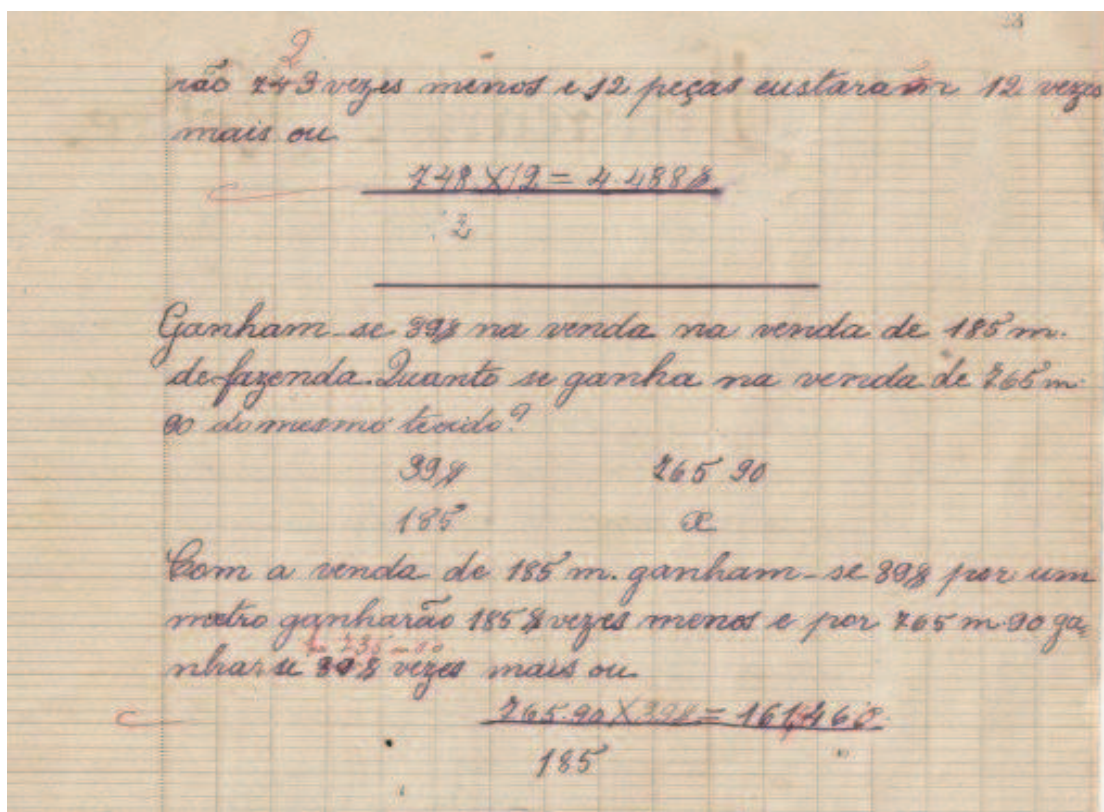 23
2
rão 743 vezes menos e 12 peças custaram 12 vezes
mais ou
748 X12 = 4.488$
2
Ganham-se 39$ na venda na venda de 185 m.
de fazenda. Quanto se ganha na venda de 765 m.
90 do mesmo tecido?
39$ 765 90
185 x
Com a venda de 185 m. ganham-se 39$ por um
metro ganharão 185 $ vezes menos e por 765 m.90 ga-
nhar se 39$ vezes mais ou
765.90 X 39$ = 161$460
185